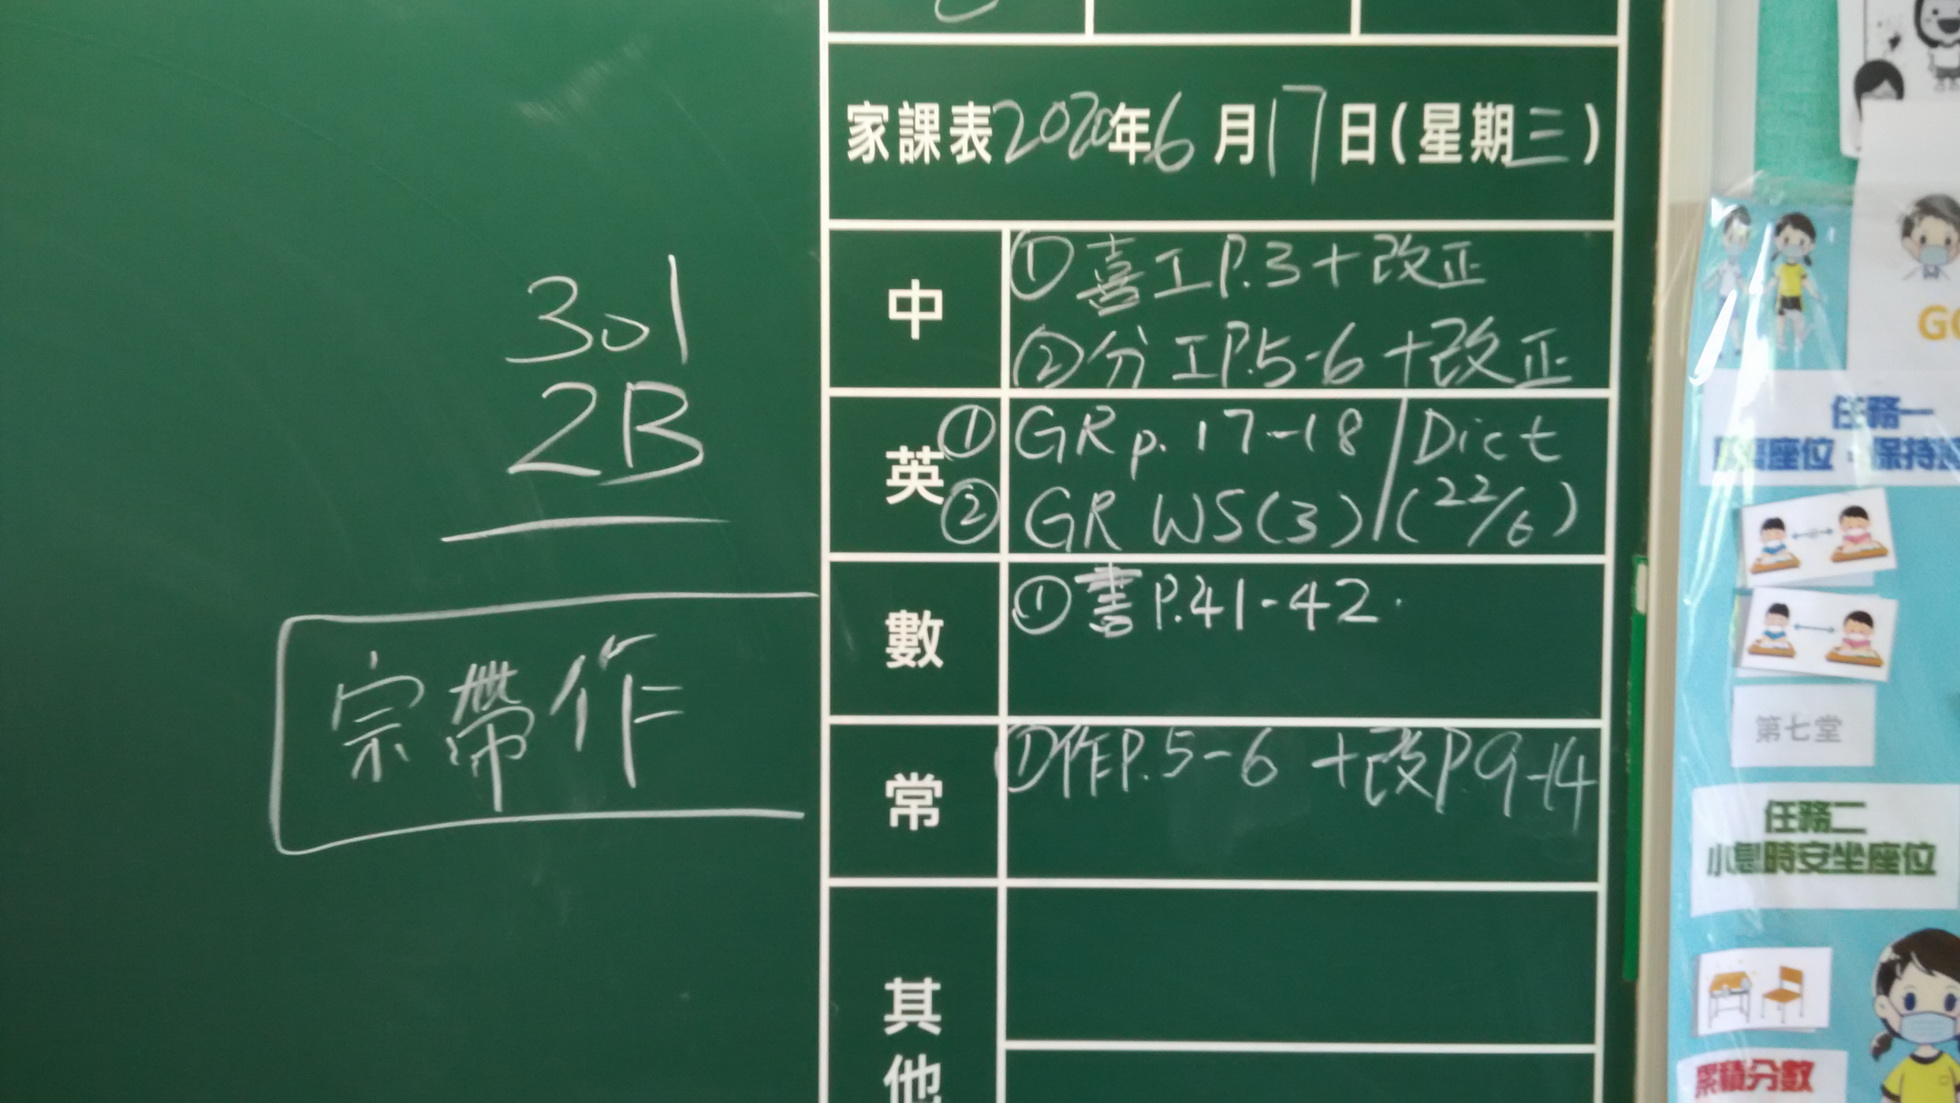 301
2B
宗帶作
家課表2020年6月17日(星期三)
中
①喜工P.3+改正
②分工P.5-6+改正
英
①GR p. 17-18 / Dict
②GR WS(3) / (22/6)
數
①書P.41-42.
常
①作P.5-6 +改P.9-14
其他
任務一
座位 保持
第七堂
任務二
小息時安坐座位
累積分數